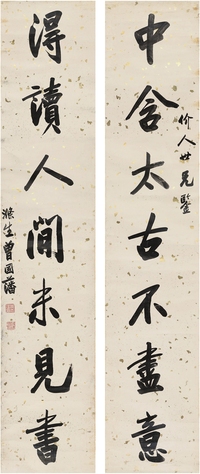 中含太古不盡意
介人世兄鑒
得讀人間未見書
滌生曾國藩